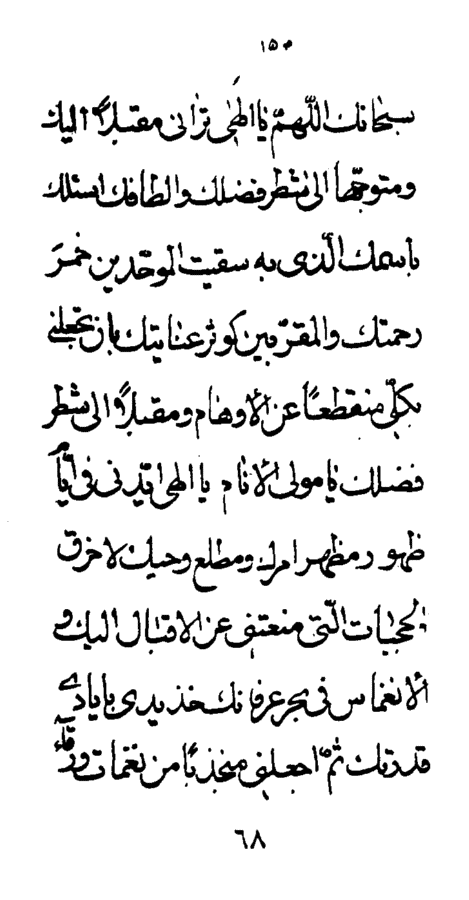 ١٥٠
سبحانك اللّهمّ يا الهي تراني مقبلاً اليك
ومتوجّهاً الى شطر فضلك والطافك اسئلك
باسمك الّذى به سقيت الموحّدين خمرَ
رحمتك والمقرّبين كوثر عنايتك بان تجعلني
بكلّي منقطعاً عن الأوهام ومقبلاً الى شطر
فضلك يا مولى الأنام يا الهي ايّدني في ايّام
ظهور مظهر امرك ومطلع وحيك لاخرق
الحجبات الّتي منعتني عن الاقبال اليك و
الانغماس في بحر عرفانك خذ يدي بايادي
قدرتك ثمّ اجعلني منجذباً من نغمات ورقآء
٦٨